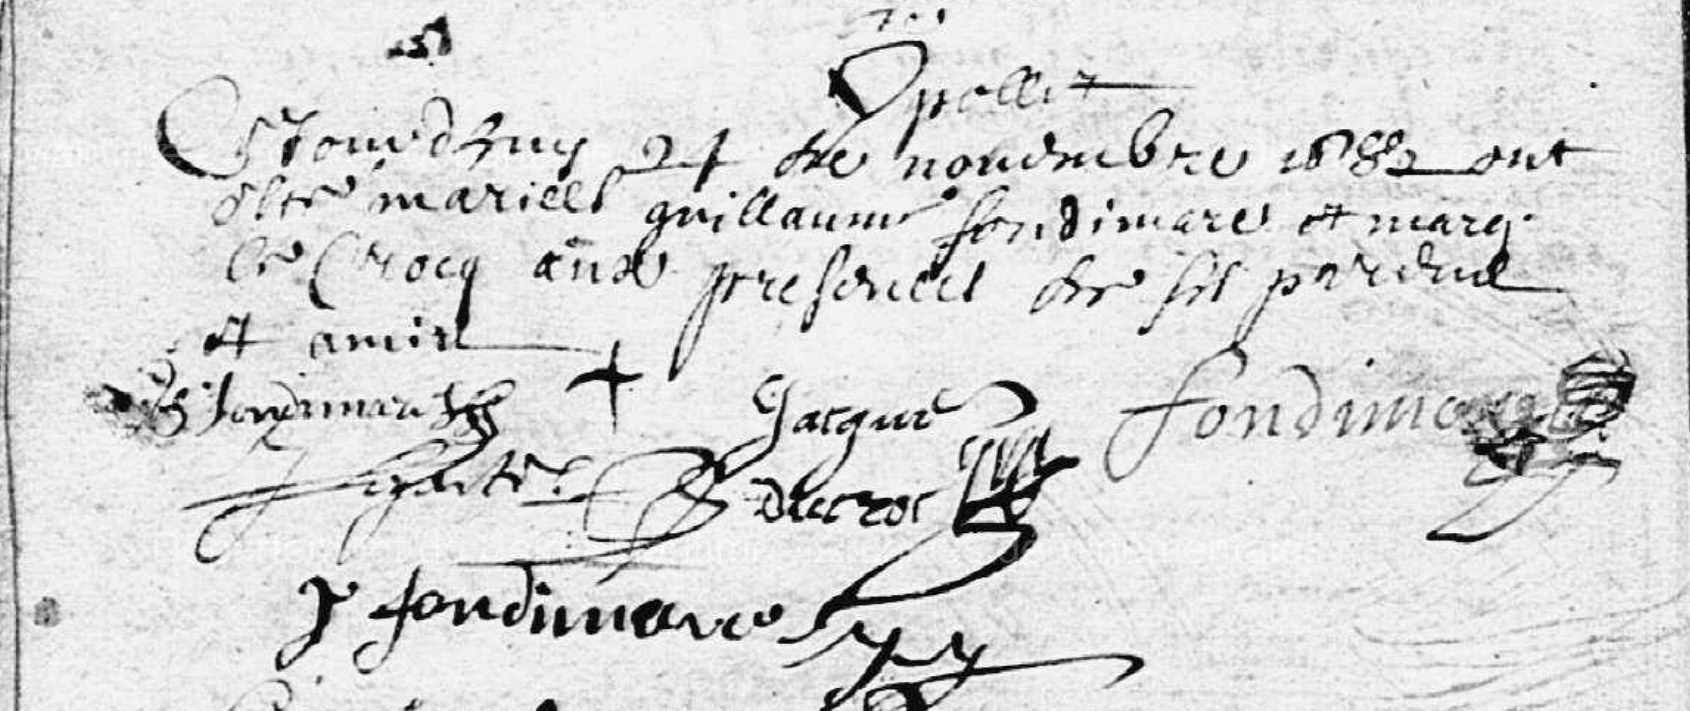 pollet
Jourdhuy 24 de novembre 1682 ont
este mariees guillaume fondimare et marg.
le Crocq en presences de ses parens
et amis
fondimare
Jacque
fondimare
ducroc
J fondimare